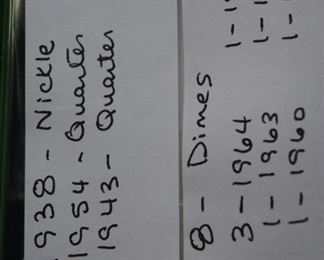 1938 - Nickle
1954 - Quarter
1943 - Quarter
8 - Dimes
3 - 1964
1 - 1963
1 - 1960